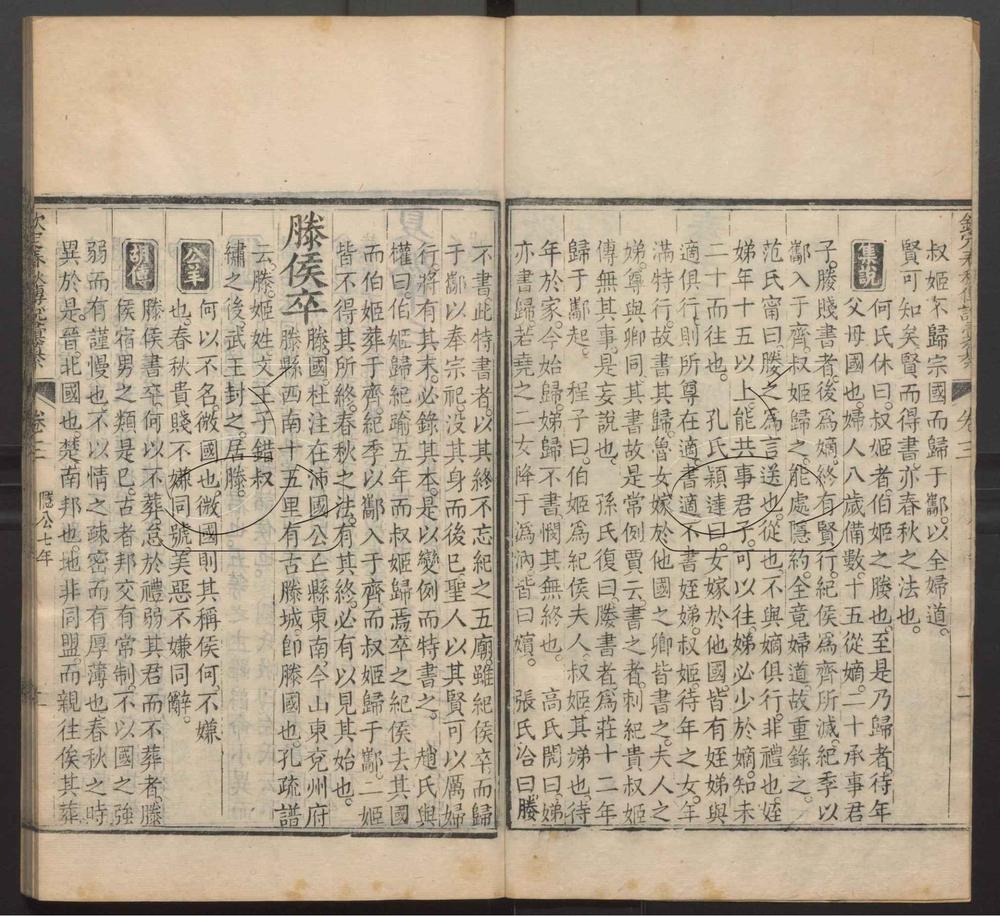 叔姬不歸宗國而歸于酅以全婦道
賢可知矣賢而得書亦春秋之法也
集說
何氏休曰叔姬者伯姬之媵也至是乃歸者待年
父母國也婦人八歲備數十五從嫡二十承事君
子媵賤書者後爲嫡終有賢行紀侯爲齊所滅紀季以
酅入于齊叔姬歸之能處隱約全竟婦道故重錄之
范氏甯曰媵之爲言送也從也不與嫡俱行非禮也姪
娣年十五以上能共事君子可以往娣必少於嫡知未
二十而往也 孔氏穎達曰女嫁於他國皆有姪娣與
適俱行則所尊在適書適不書姪娣叔姬待年之女年
滿特行故書其歸魯女嫁於他國之卿皆書之夫人之
娣尊與卿同其書故是常例賈云書之者刺紀貴叔姬
傳無其事是妄說也 孫氏復曰媵書者爲莊十二年
歸于酅起 程子曰伯姬爲紀侯夫人叔姬其娣也待
年於家今始歸娣歸不書憫其無終也 高氏閌曰娣
亦書歸若堯之二女降于溈汭皆曰嬪 張氏洽曰媵
不書此特書者以其終不忘紀之五廟雖紀侯卒而歸
于酅以奉宗祀沒其身而後已聖人以其賢可以厲婦
行將有其末必錄其本是以變例而特書之 趙氏與
權曰伯姬歸紀踰五年而叔姬歸焉卒之紀侯去其國
而伯姬葬于齊紀季以酅入于齊而叔姬歸于酅二姬
皆不得其所終春秋之法有其終必有以見其始也
滕侯卒
滕國杜注在沛國公丘縣東南今山東兖州府
滕縣西南十五里有古滕城卽滕國也孔疏譜
云滕姬姓文王子錯叔
繡之後武王封之居滕
公羊
何以不名微國也微國則其稱侯何不嫌
也春秋貴賤不嫌同號美惡不嫌同辭
胡傳
滕侯書卒何以不葬怠於禮弱其君而不葬者滕
侯宿男之類是已古者邦交有常制不以國之強
弱而有謹慢也不以情之疎密而有厚薄也春秋之時
異於是晉北國也楚南邦也地非同盟而親往侯其葬
卷三
隱公七年